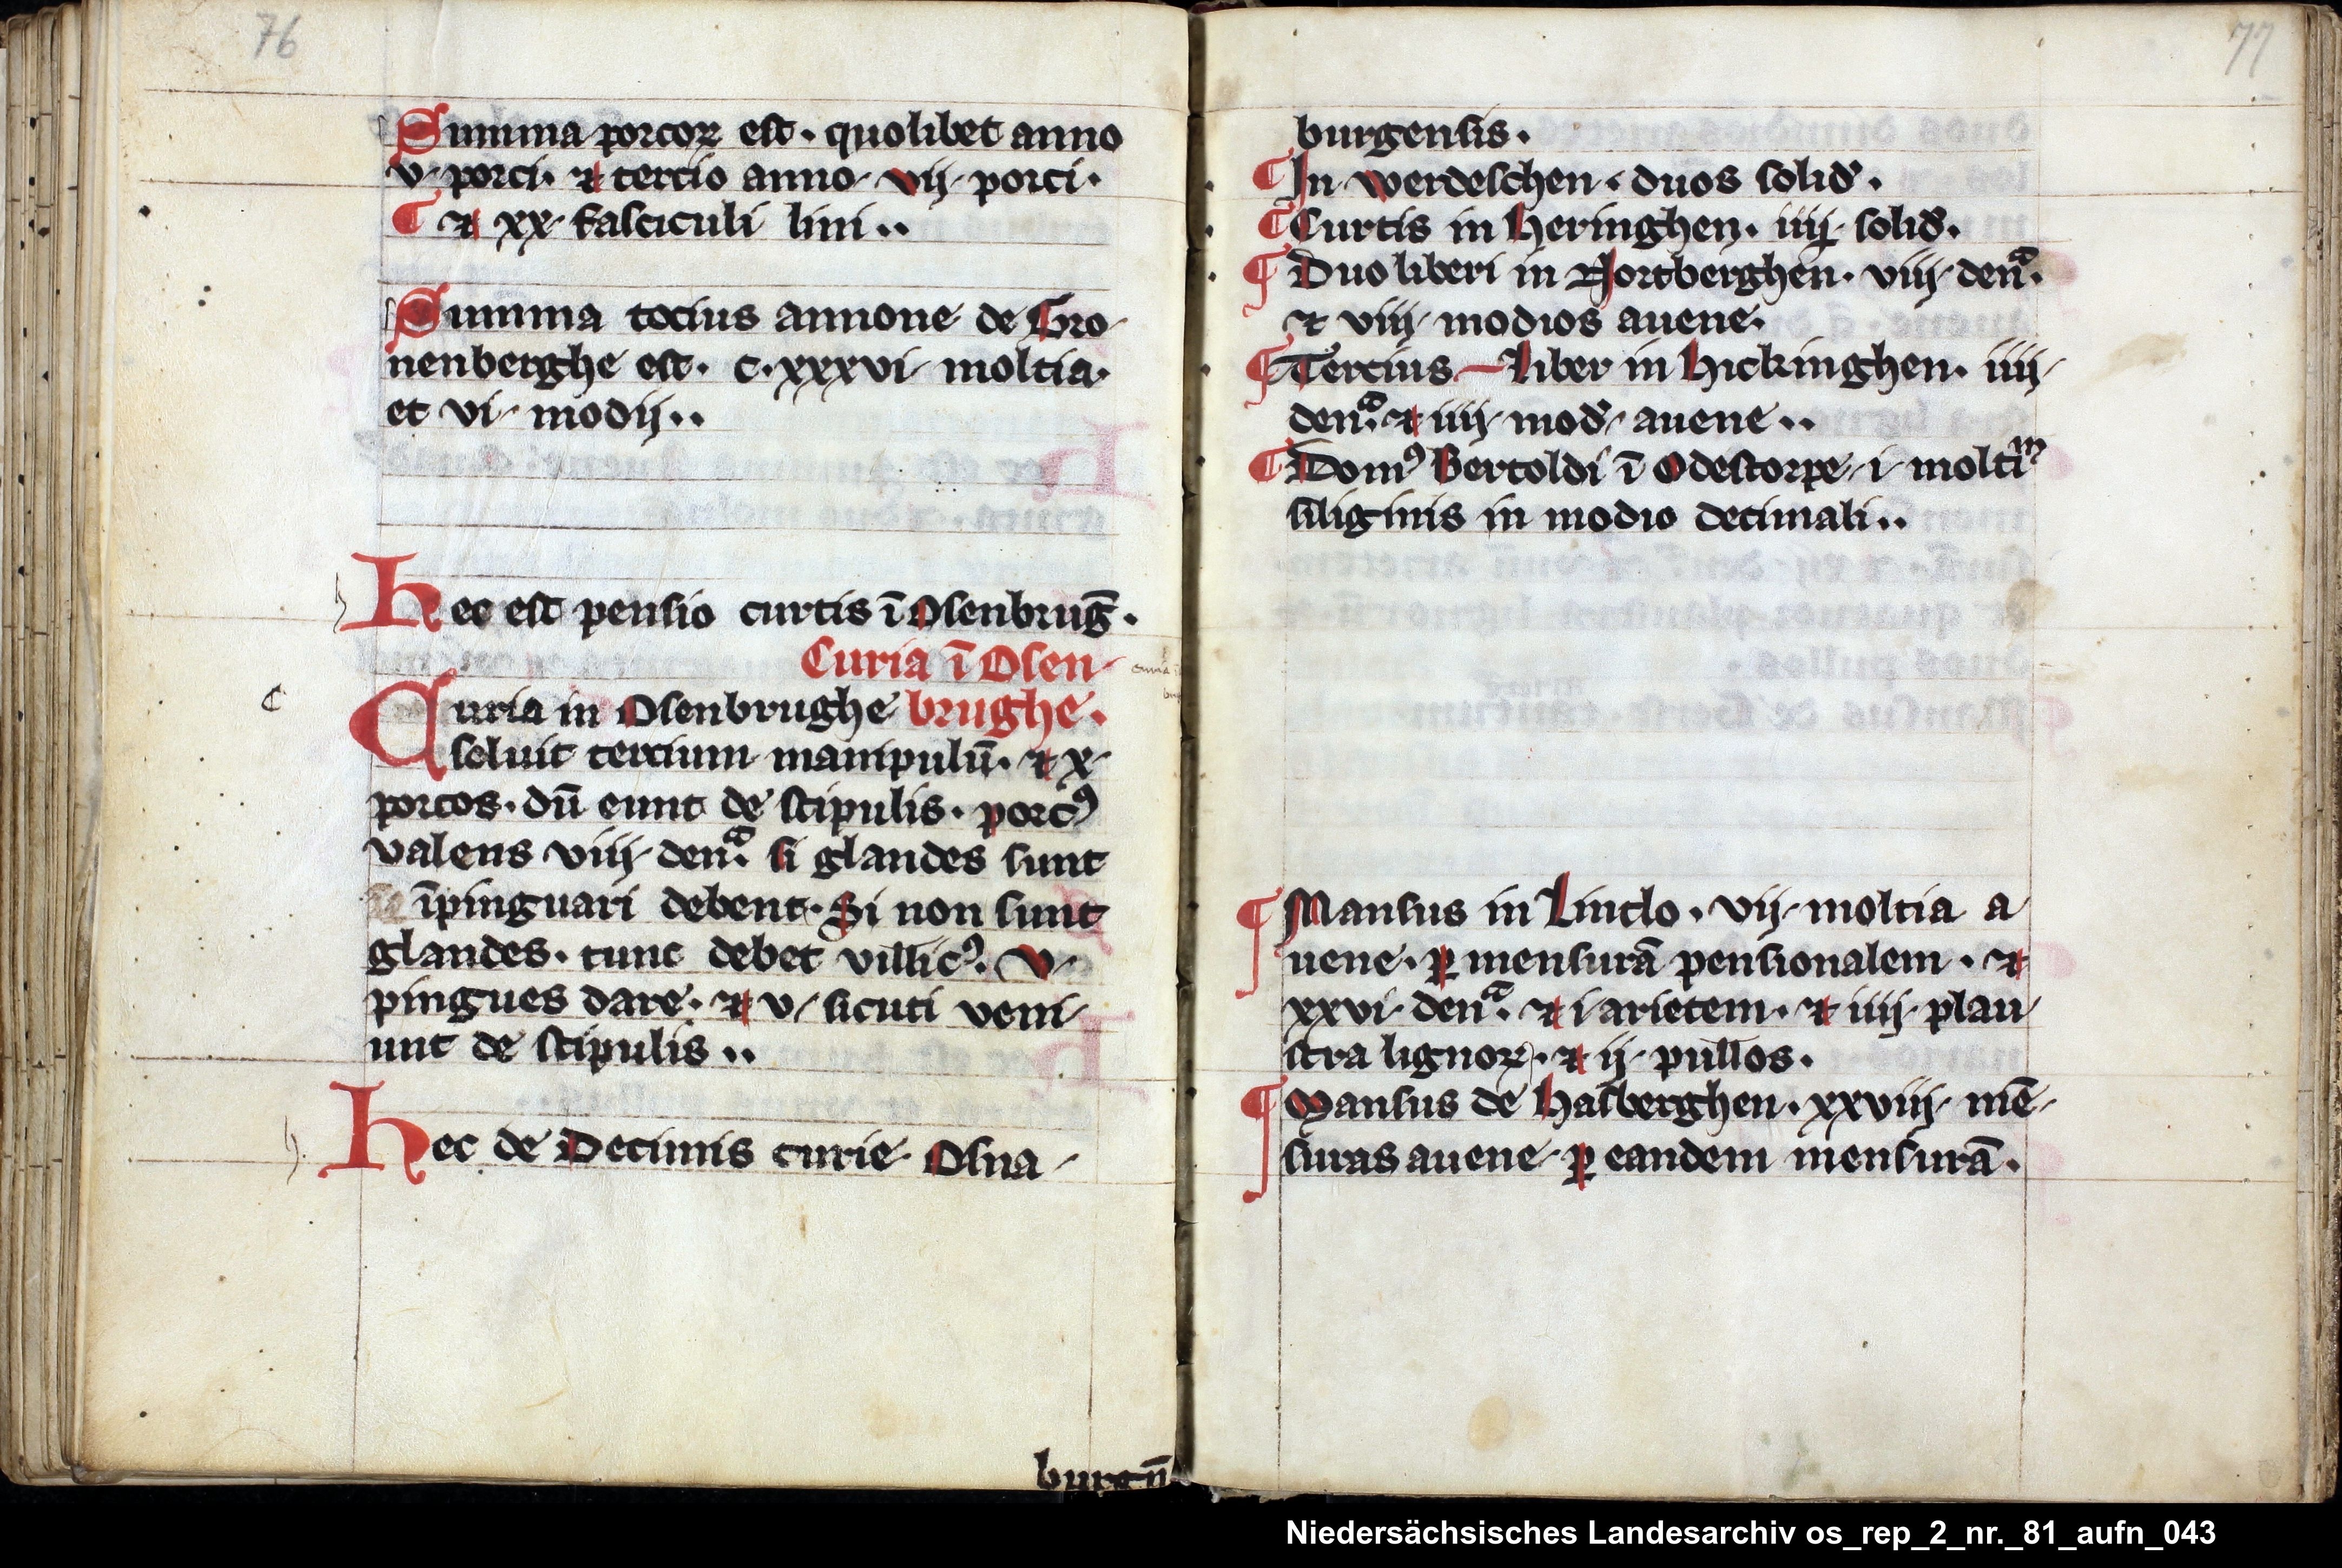 76
Summa porcoꝝ est · quolibet anno
v · porci · ⁊ tercio anno · vij · porci ·
¶ ⁊ xx · fasciculi lini ··
Summa tocius annone de Gro-
nenberghe est · c · xxxvi · moltia ·
et vi · modij ··
Hec est pensio curtis ī Osenbrug̅ ·
Curia ī Osen-
Curia in Osenbrughe brughe ·
soluit tercium manipulū · ⁊ x ·
porcos · dū eunt de stipulis · porcꝰ
valens viij · denͣ · si glandes sunt
īpinguari debent · Si non sunt
glandes · tunc debet villicꝰ · v ·
pingues dare · ⁊ v · sicuti veni-
unt de stipulis ··
Hec de Decimis curie Osna-
burgn̄
77
burgensis ·
¶ In werdeschen · duos solid̕ ·
¶ Curtis in Heringhen · iiij · solid̕ ·
¶ Duo liberi in Nortberghen · viij · denͣ ·
⁊ viij · modios auene ·
¶ Tercius liber in Hickinghen · iiij ·
denͣ · ⁊ iiij · mod̕ · auene ··
¶ Domꝰ Bertoldi ī Odestorpe · i · moltiᵐ
siliginis in modio decimali ··
¶ Mansus in Lintlo · vij · moltia a-
uene · ꝑ mensurā pensionalem · ⁊
xxvi · denͣ · ⁊ i arietem · ⁊ iiij · plau-
stra lignoꝝ · ⁊ ij · pullos ·
¶ Mansus de Halberghen · xxviij · mē-
suras auene · ꝑ eandem mensurā ·
Niedersächsisches Landesarchiv os_rep_2_nr._81_aufn_043